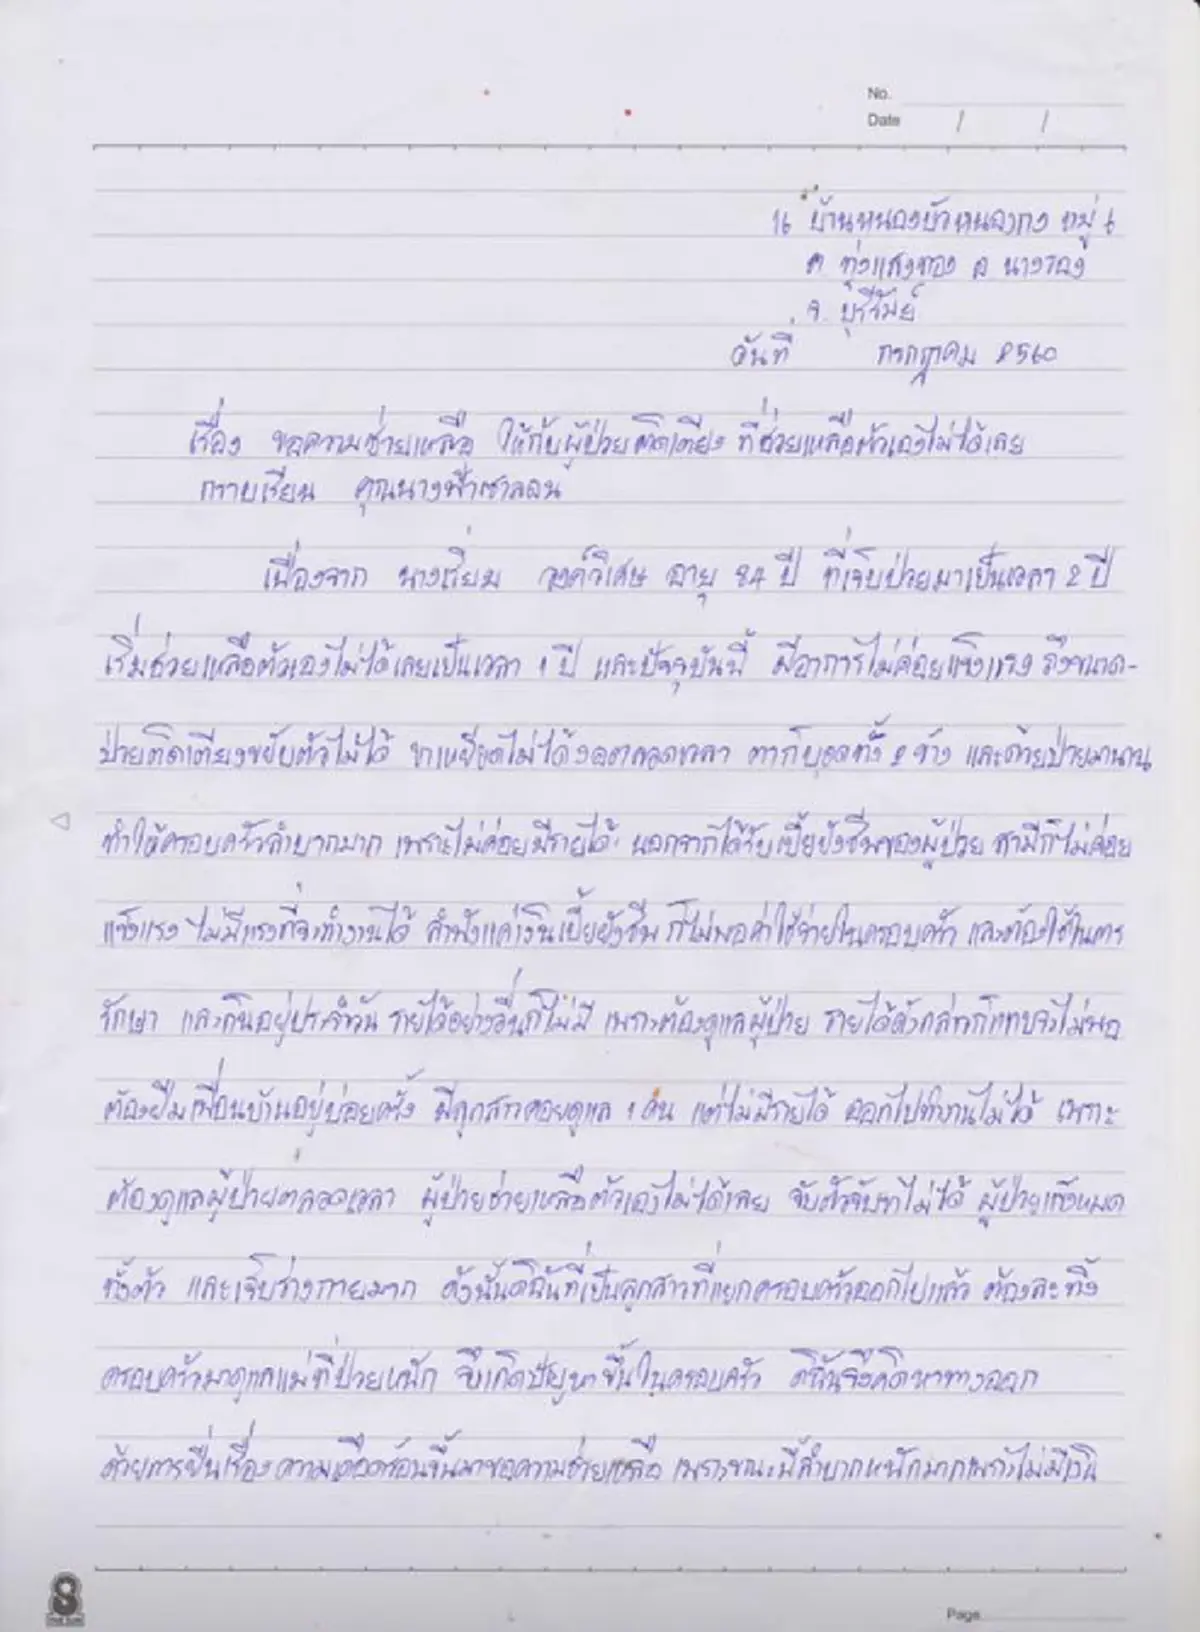 No.
Date / /
16 บ้านหนองบัวหนองกง หมู่ 6
ต. ทุ่งแสงทอง อ นางรอง
จ. บุรีรัมย์
วันที่ กรกฎาคม 2560
เรื่อง ขอความช่วยเหลือ ให้กับผู้ป่วยติดเตียง ที่ช่วยเหลือตัวเองไม่ได้เลย
กราบเรียน คุณนางฟ้าซาลอน
เนื่องจาก นางเรี่ยม วงค์วิเศษ อายุ 84 ปี ที่เจ็บป่วยมาเป็นเวลา 2 ปี
เริ่มช่วยเหลือตัวเองไม่ได้เลยเป็นเวลา 1 ปี และปัจจุบันนี้ มีอาการไม่ค่อยแข็งแรง ถึงขนาด-
ป่วยติดเตียงขยับตัวไม่ได้ ขาเหยียดไม่ได้งอตลอดเวลา ตาก็บอดทั้ง 2 ข้าง และด้วยป่วยมานาน
ทำให้ครอบครัวลำบากมาก เพราะไม่ค่อยมีรายได้ นอกจากได้รับเบี้ยยังชีพของผู้ป่วย สามีก็ไม่ค่อย
แข็งแรง ไม่มีแรงที่จะทำงานได้ ลำพังแค่เงินเบี้ยยังชีพ ก็ไม่พอค่าใช้จ่ายในครอบครัว และต้องใช้ในการ
รักษา และกินอยู่ประจำวัน รายได้อย่างอื่นก็ไม่มี เพราะต้องดูแลผู้ป่วย รายได้ดังกล่าวก็แทบจะไม่พอ
ต้องยืมเพื่อนบ้านอยู่บ่อยครั้ง มีลูกสาวคอยดูแล 1 คน แต่ไม่มีรายได้ ออกไปทำงานไม่ได้ เพราะ
ต้องดูแลผู้ป่วยตลอดเวลา ผู้ป่วยช่วยเหลือตัวเองไม่ได้เลย จับตัวจับขาไม่ได้ ผู้ป่วยแข็งหมด
ทั้งตัว และเจ็บร่างกายมาก ดังนั้นดิฉันที่เป็นลูกสาวที่แยกครอบครัวออกไปแล้ว ต้องละทิ้ง
ครอบครัวมาดูแลแม่ที่ป่วยหนัก จึงเกิดปัญหาขึ้นในครอบครัว ดิฉันจึงคิดหาทางออก
ด้วยการยื่นเรื่องความเดือดร้อนขึ้นมาขอความช่วยเหลือ เพราะขณะนี้ลำบากหนักมากเพราะไม่มีเงิน
Page